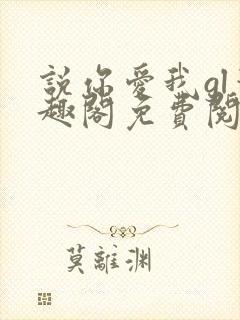 說你愛我gl
趣閣免費閱
莫離渊